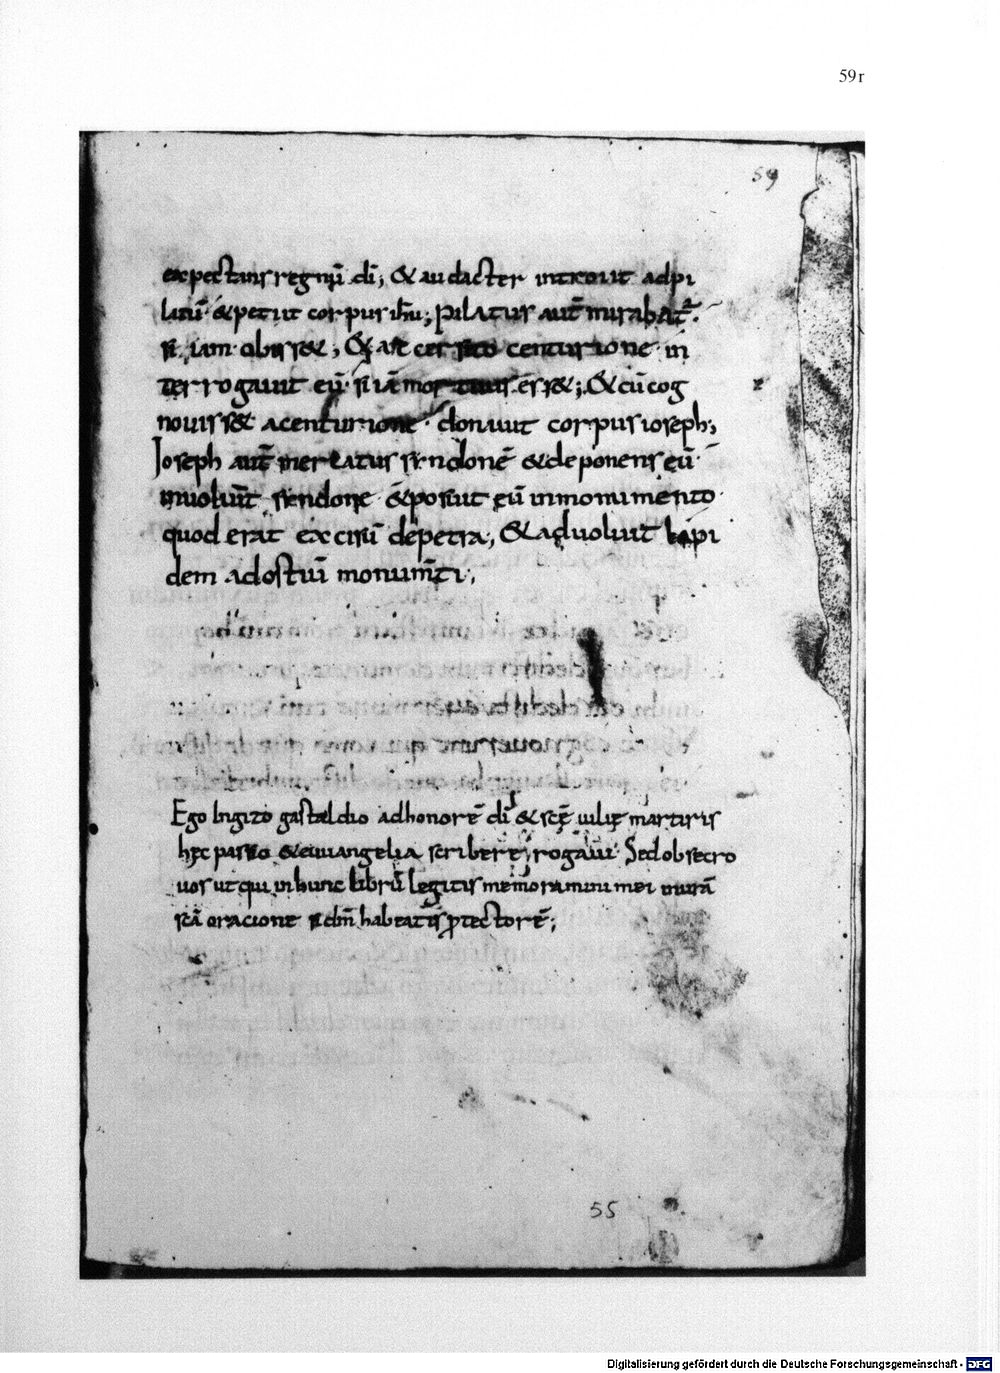 59r
59
expectans regnū dī; & audacter introiit adpi
latū· & petiit corpus ihū; Pilatus autē mirabat̃·
si iam obiss&; & ac cersito centurione in
terrogauit eū· si iā mortuus ess&; & cū cog
nouiss& acenturione· donauit corpus ioseph;
Joseph autē mercatus sendonē & deponens eū
inuoluit sendone & posuit eū inmonumento
quod erat excisū depetra; & aduoluit lapi
dem adostiū monumti;
Ego Ingizo gastaldio adhonorē dī & scē iulię martiris
hęc passio & euuangelia scribere rogaui· Sed obsecro
uos ut qui in hunc librū legitis memoramini mei in urā
scā oracione si dm̄ habeatis ꝓtectorē;
55
Digitalisierung gefördert durch die Deutsche Forschungsgemeinschaft - DFG